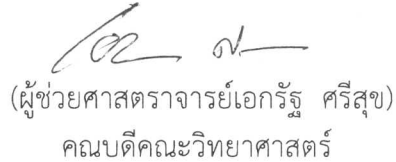 (ผู้ช่วยศาสตราจารย์เอกรัฐ ศรีสุข)
คณบดีคณะวิทยาศาสตร์